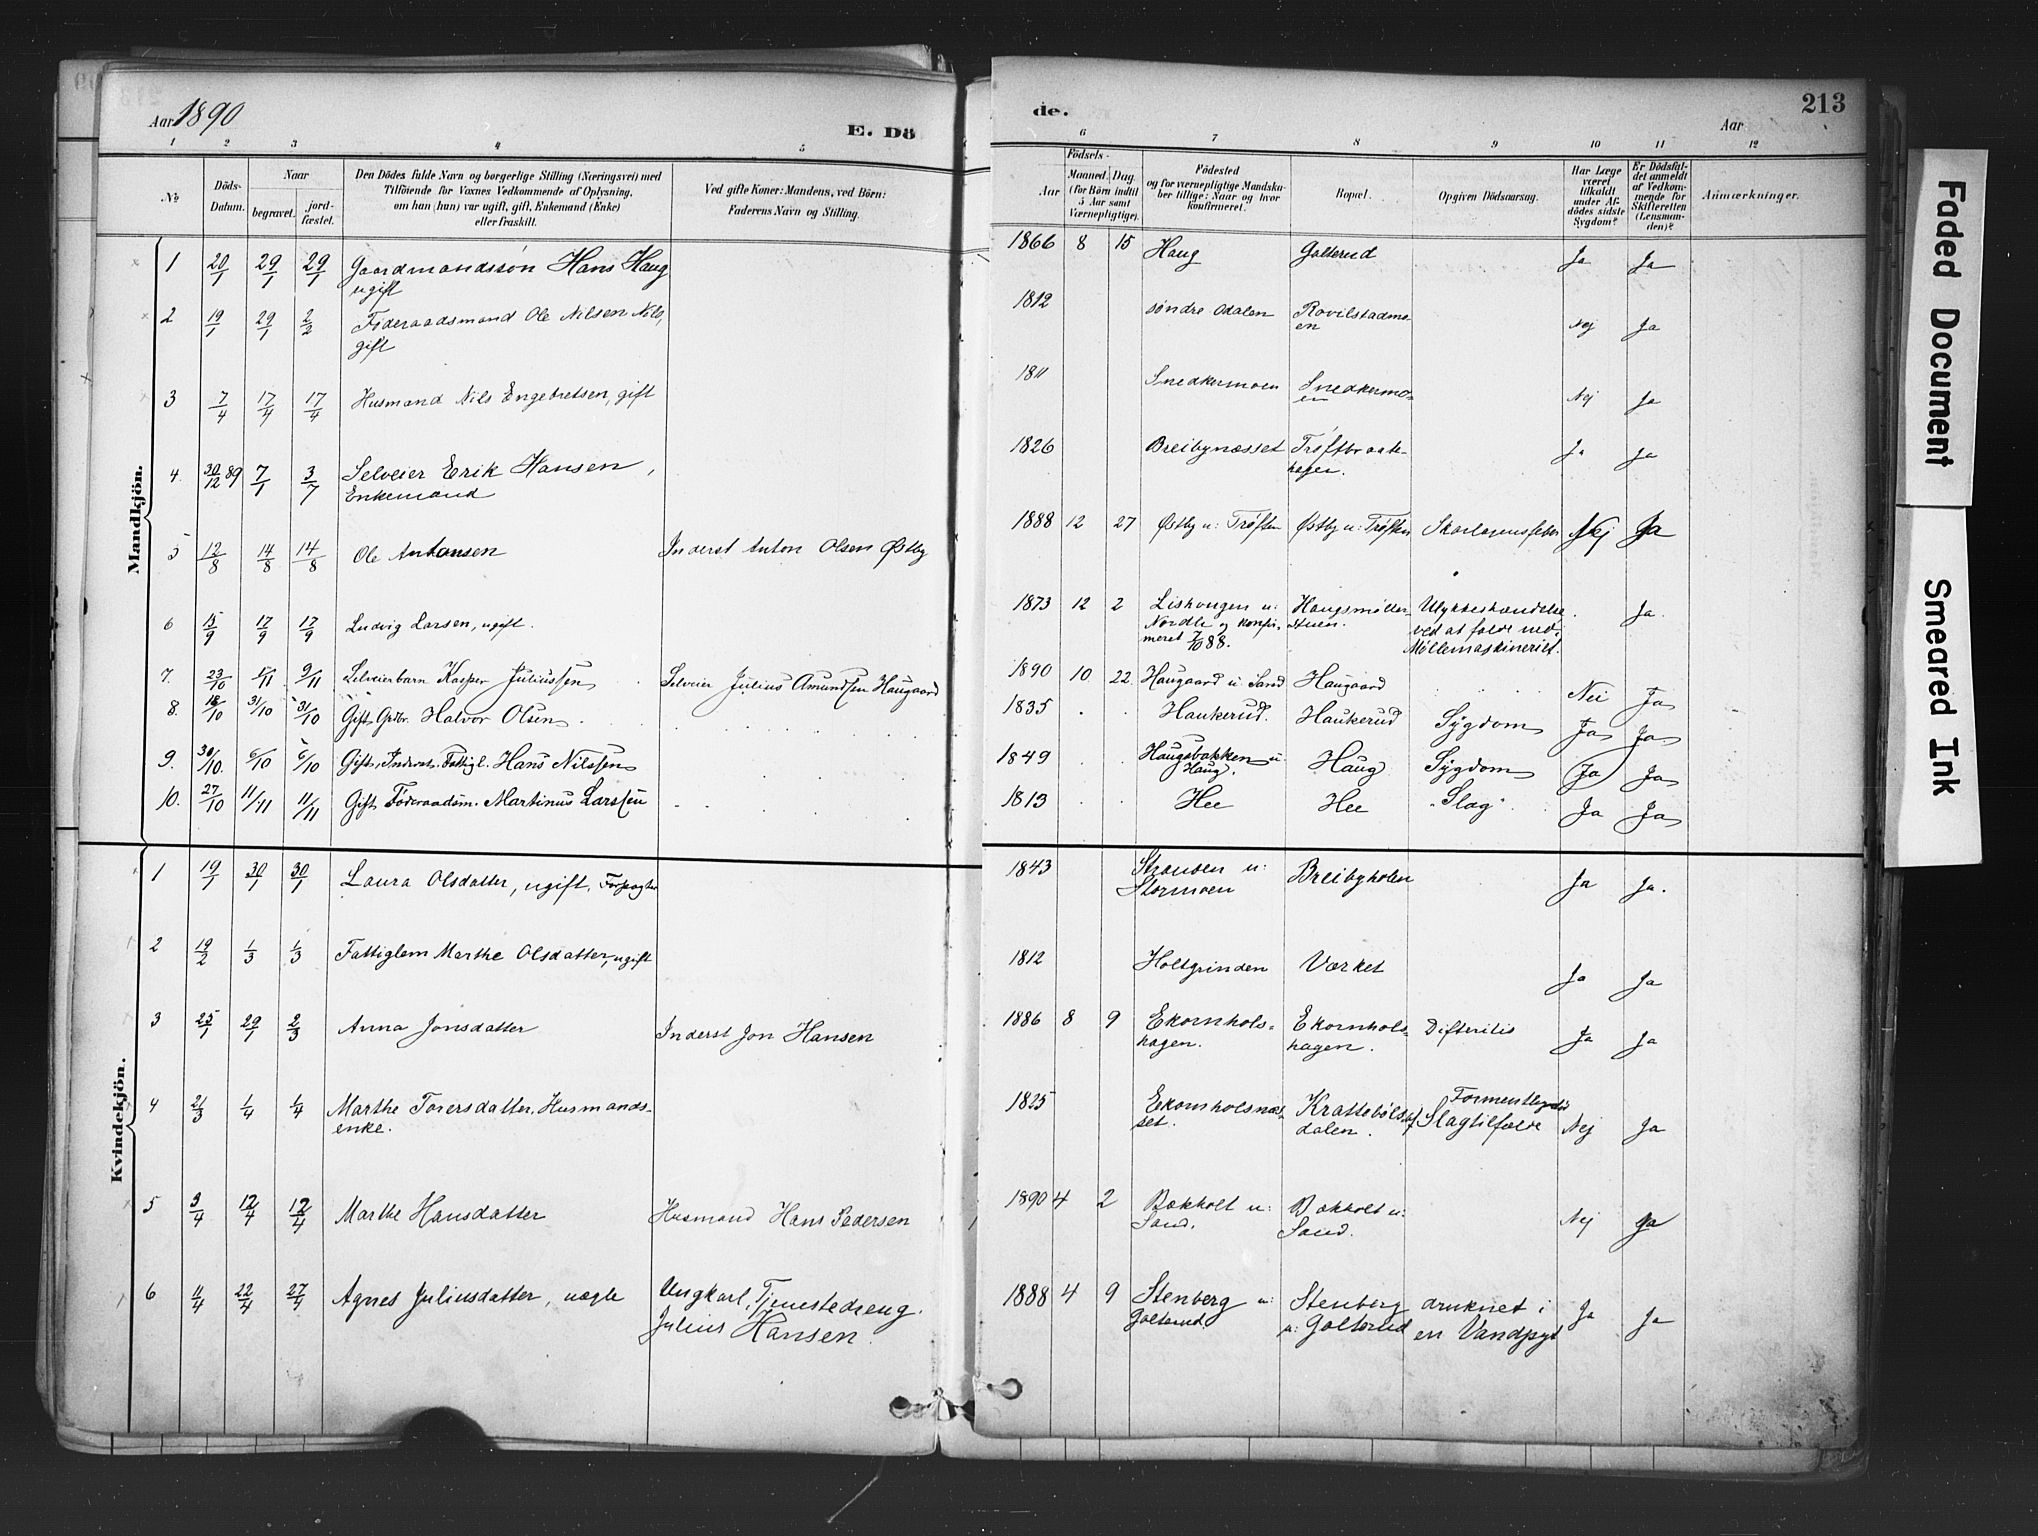 Aar 1890
E. Dö
de.
Aar
213
1 2 3 4 5 6 7 8 9 10 11 12
No
Döds-Datum.
Naar
begravet.
jord-fæstet.
Den Dödes fulde Navn og borgerlige Stilling (Næringsvei) med
Tilföiende for Voxnes Vedkommende af Oplysning,
om han (hun) var ugift, gift, Enkemand (Enke)
eller fraskilt.
Ved gifte Koner: Mandens, ved Börn:
Faderens Navn og Stilling.
Födsels-
Aar Maaned. Dag
(for Börn indtil
5 Aar samt
Værnepligtige).
Födested
og for værnepligtige Mandska-
ber tillige: Naar og hvor
konfirmeret.
Bopæl.
Opgiven Dödsaarsag.
Har Læge
været
tilkaldt
under Af-
dödes sidste
Sygdom?
Er Dödsfal-
det anmeldt
af Vedkom-
mende for
Skifteretten
(Lensman-
den)?
Anmærkninger.
Mandkjön.
1 20/1 29/1 29/1 Gaardmandssøn Hans Haug 1866 8 15 Haug Galterud Ja Ja
ugift
2 19/1 29/1 2/2 Føderaadsmand Ole Nilsen Nils, 1812 søndre Odalen Rovilstadmo- Nej Ja
gift en
3 7/4 17/4 17/4 Husmand Nils Engebretsen, gift 1811 Snedkermoen Snedkermo- Nej Ja
en
4 30/12 89 7/1 3/7 Selveier Erik Hansen, 1826 Breibynæsset Trøftbraate- Ja Ja
Enkemand hagen.
5 12/8 14/8 14/8 Ole Antonsen Inderst Anton Olsen Østby 1888 12 27 Østby u: Trøften Østby u: Trøften Skarlagensfeber Nej Ja
6 15/9 17/9 17/9 Ludvig Larsen, ugift. 1873 12 2 Liskongen u: Haugsmølle- Ulykkeshændelse Ja.
Nordli og konfir- stuen. ved at falde ned i
meret 7/10 88. Møllemaskineriet.
7. 23/10 5/11 9/11 Selveierbarn Kasper Juliussen Selveier Julius Amundsen Haugaard 1890 10 22 Haugaard u: Sand Haugaard Nei Ja
8. 18/10 31/10 31/10 Gift Grdbr. Halvor Olsen 1835 Haukerud. Haukerud Sygdom Ja Ja
9. 30/10. 6/10 6/10 Gift, Inderst, Fattigl. Hans Nilssen 1849 Haugsbakken u Haug Sygdom Ja Ja
Haug.
10. 27/10 11/11 11/11 Gift Føderaadsm. Martinus Larssen 1813 Hee Hee "Slag" Ja Ja
Kvindekjön.
1 19/1 30/1 30/1 Laura Olsdatter, ugift, 1843 u: Breibyholen Ja Ja.
Stormoen
2 19/2 1/3 1/3 Fattiglem Marthe Olsdatter, ugift 1812 Holtgrinden Værket Ja Ja
3 25/1 29/1 2/3 Anna Jonsdatter Inderst Jon Hansen 1886 8 9 Ekornhols- Ekornhols- Difteritis Ja Ja
hagen. hagen.
4 21/3 1/4 1/4 Marthe Torersdatter, Husmands- 1825 Ekornholsnæs- Krattebøls- Formentlig
enke. set. dalen. Slagtilfælde Nej Ja
5 3/4 12/4 12/4 Marthe Hansdatter Husmand Hans Pedersen 1890 4 2 Bækholt u: Bækholt u: Nej Ja
Sand. Sand.
6 11/4 22/4 27/4 Agnes Juliusdatter, uægte Ungkarl, Tjenestedreng. 1888 4 9 Stenberg u: Stenberg druknet i Ja Ja
Julius Hansen. Galterud. u: Galterud en Vandpyt
Faded Document
Smeared Ink